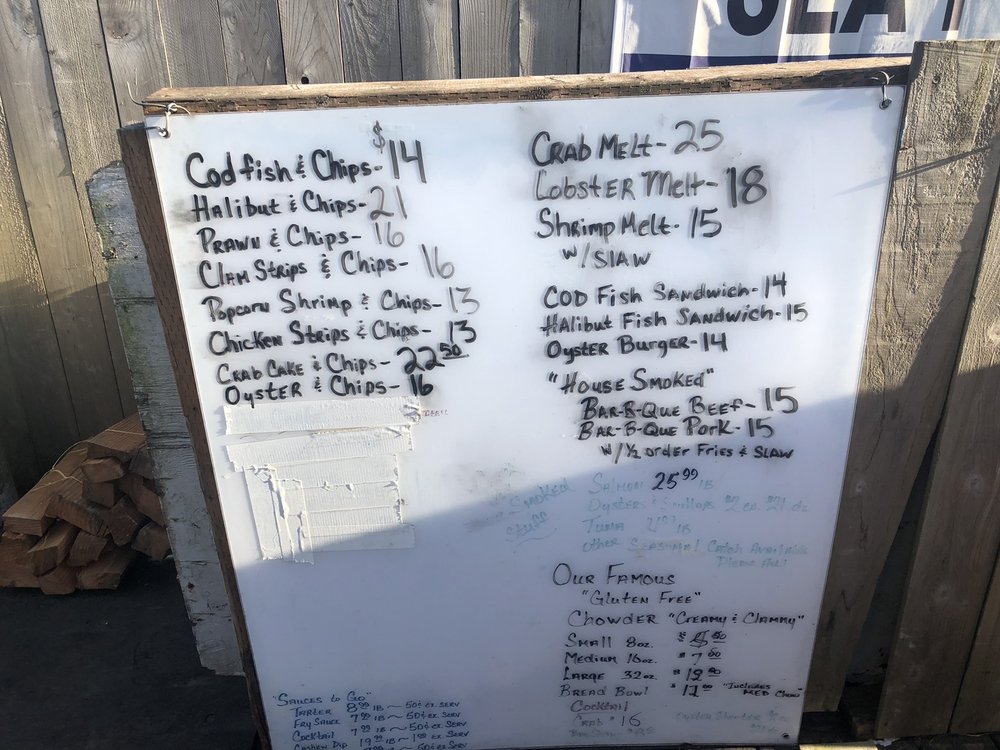 $
Codfish & Chips- 14
Halibut & Chips- 21
Prawn & Chips- 16
Clam Strips & Chips- 16
Popcorn Shrimp & Chips- 13
Chicken Strips & Chips- 13
Crab Cake & Chips- 22.50
Oyster & Chips- 16
Crab Melt- 25
Lobster Melt- 18
Shrimp Melt- 15
w/ Slaw
Cod Fish Sandwich- 14
Halibut Fish Sandwich- 15
Oyster Burger- 14
"House Smoked"
Bar-B-Que Beef- 15
Bar-B-Que Pork- 15
w/ ½ order Fries & Slaw
Smoked
Stuff
Salmon 25.99 lb
Oysters
Tuna lb
Other Seasonal Catch Available
Please Ask!
Our Famous
"Gluten Free"
Chowder "Creamy & Clammy"
Small 8oz.
Medium 16oz. $7
Large 32oz. $12
Bread Bowl "Includes Med Chow"
Cocktail
Crab $16
"Sauces to Go"
Tarter 8.99 lb ~ 50¢ ex. serv
Fry Sauce 7.99 lb ~ 50¢ ex. serv
Cocktail 19.99 lb ~ 1.00 ex. serv
Cashew Dip